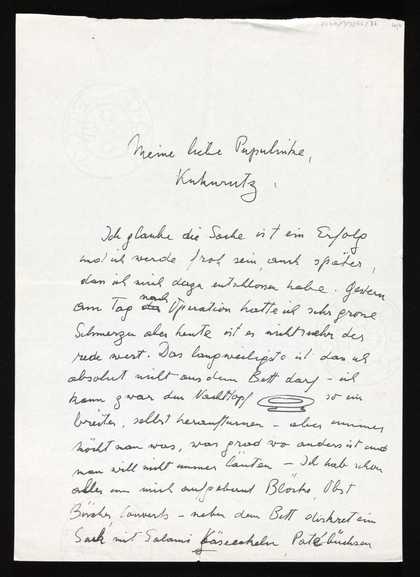 Meine liebe Pupulinke,
Kukurutz,
Ich glaube die Sache ist ein Erfolg
und ich werde froh sein, auch später,
dass ich mich dazu entschlossen habe. Gestern
am Tag nach der Operation hatte ich sehr grosse
Schmerzen aber heute ist es nicht mehr der
rede wert. Das langweiligste ist dass ich
absolut nicht aus dem Bett darf – ich
kann zwar den Nachttopf so ein
breiter, selbst heraufturnen – aber immer
möcht man was, was grad wo anders ist und
man will nicht immer läuten – Ich hab schon
alles um mich aufgebaut Blöcke, Obst
Bücher, Couverts – neben dem Bett diskret ein
Sack mit Salami Käseeckeln, Patébüchsen